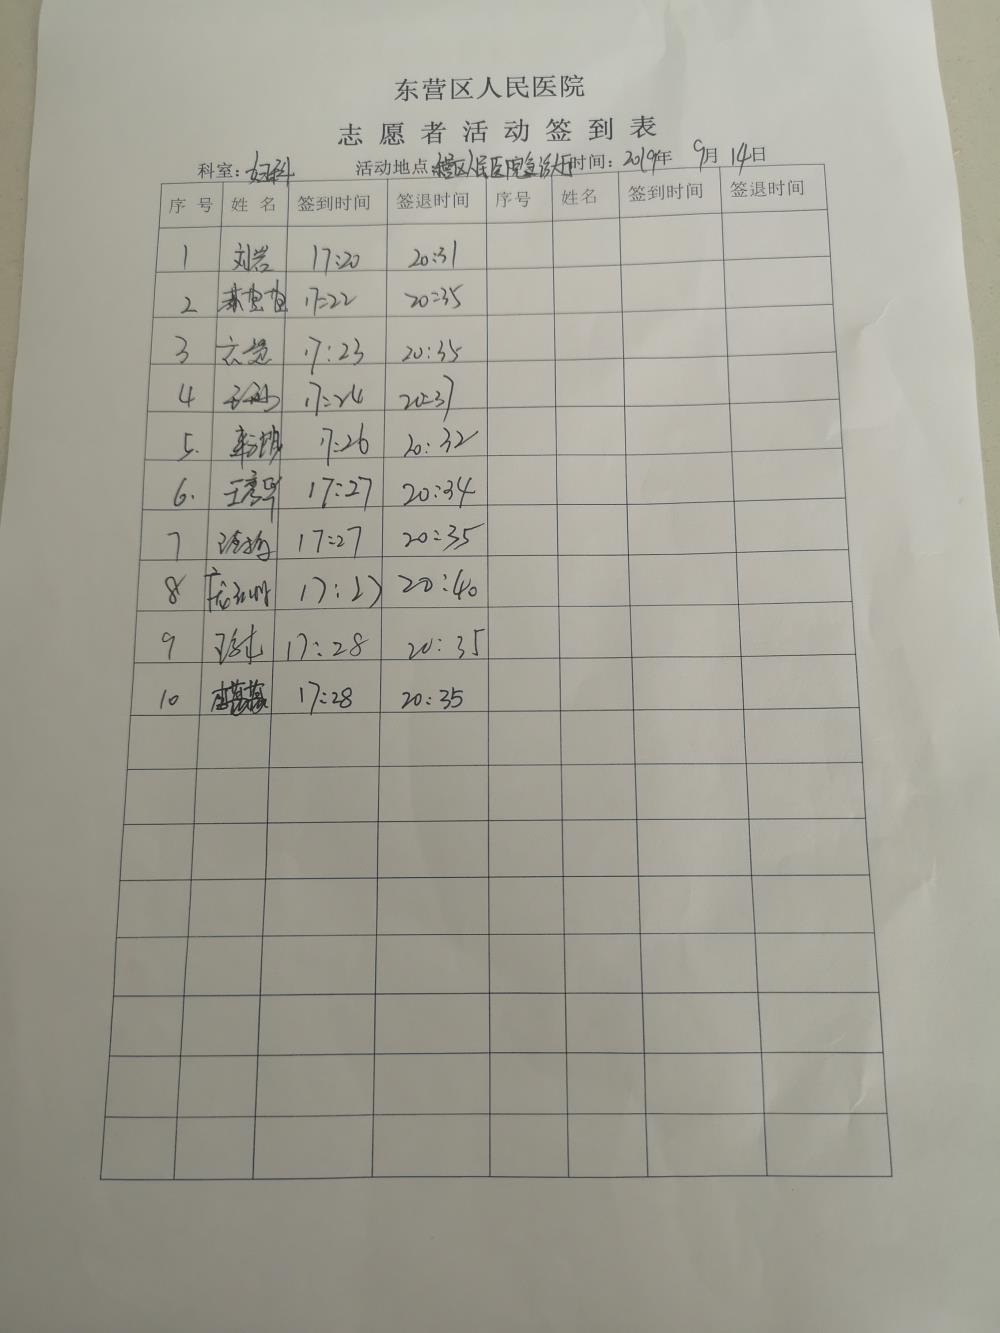 东营区人民医院
志愿者活动签到表
科室:妇科 活动地点:东营区人民医院急诊大厅 时间:2019年 9月 14日
序号 姓名 签到时间 签退时间 序号 姓名 签到时间 签退时间
1 刘岩 17:20 20:31
2 17:22 20:35
3 17:23 20:35
4 17:24 20:37
5. 17:26 20:32
6. 17:27 20:34
7 17:27 20:35
8 17:27 20:40
9 17:28 20:35
10 17:28 20:35